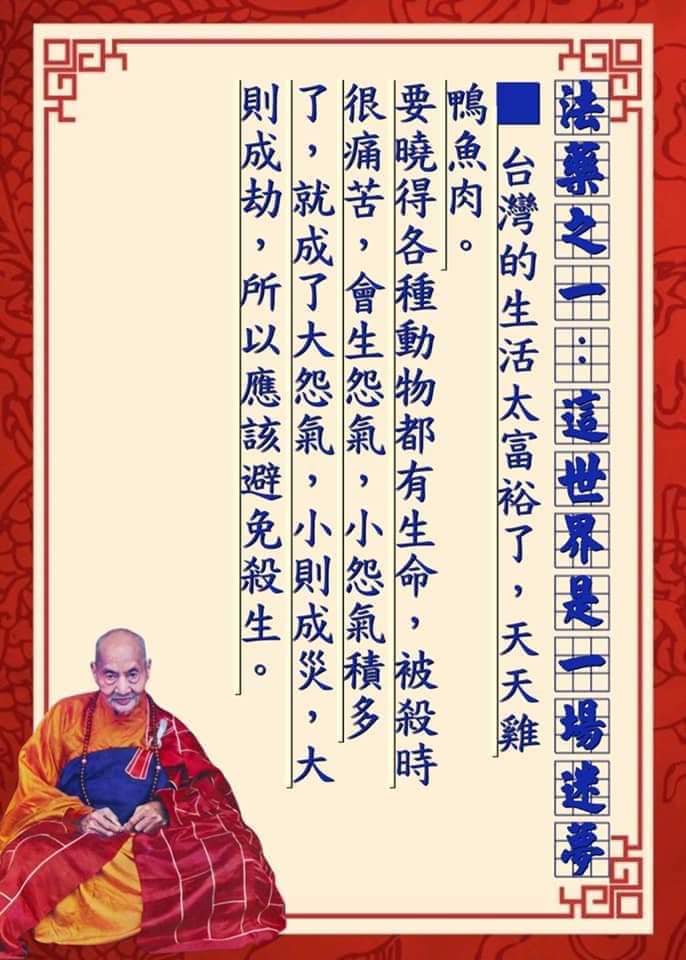 法藥之一：這世界是一場迷夢
■台灣的生活太富裕了，天天雞
鴨魚肉。
要曉得各種動物都有生命，被殺時
很痛苦，會生怨氣，小怨氣積多
了，就成了大怨氣，小則成災，大
則成劫，所以應該避免殺生。